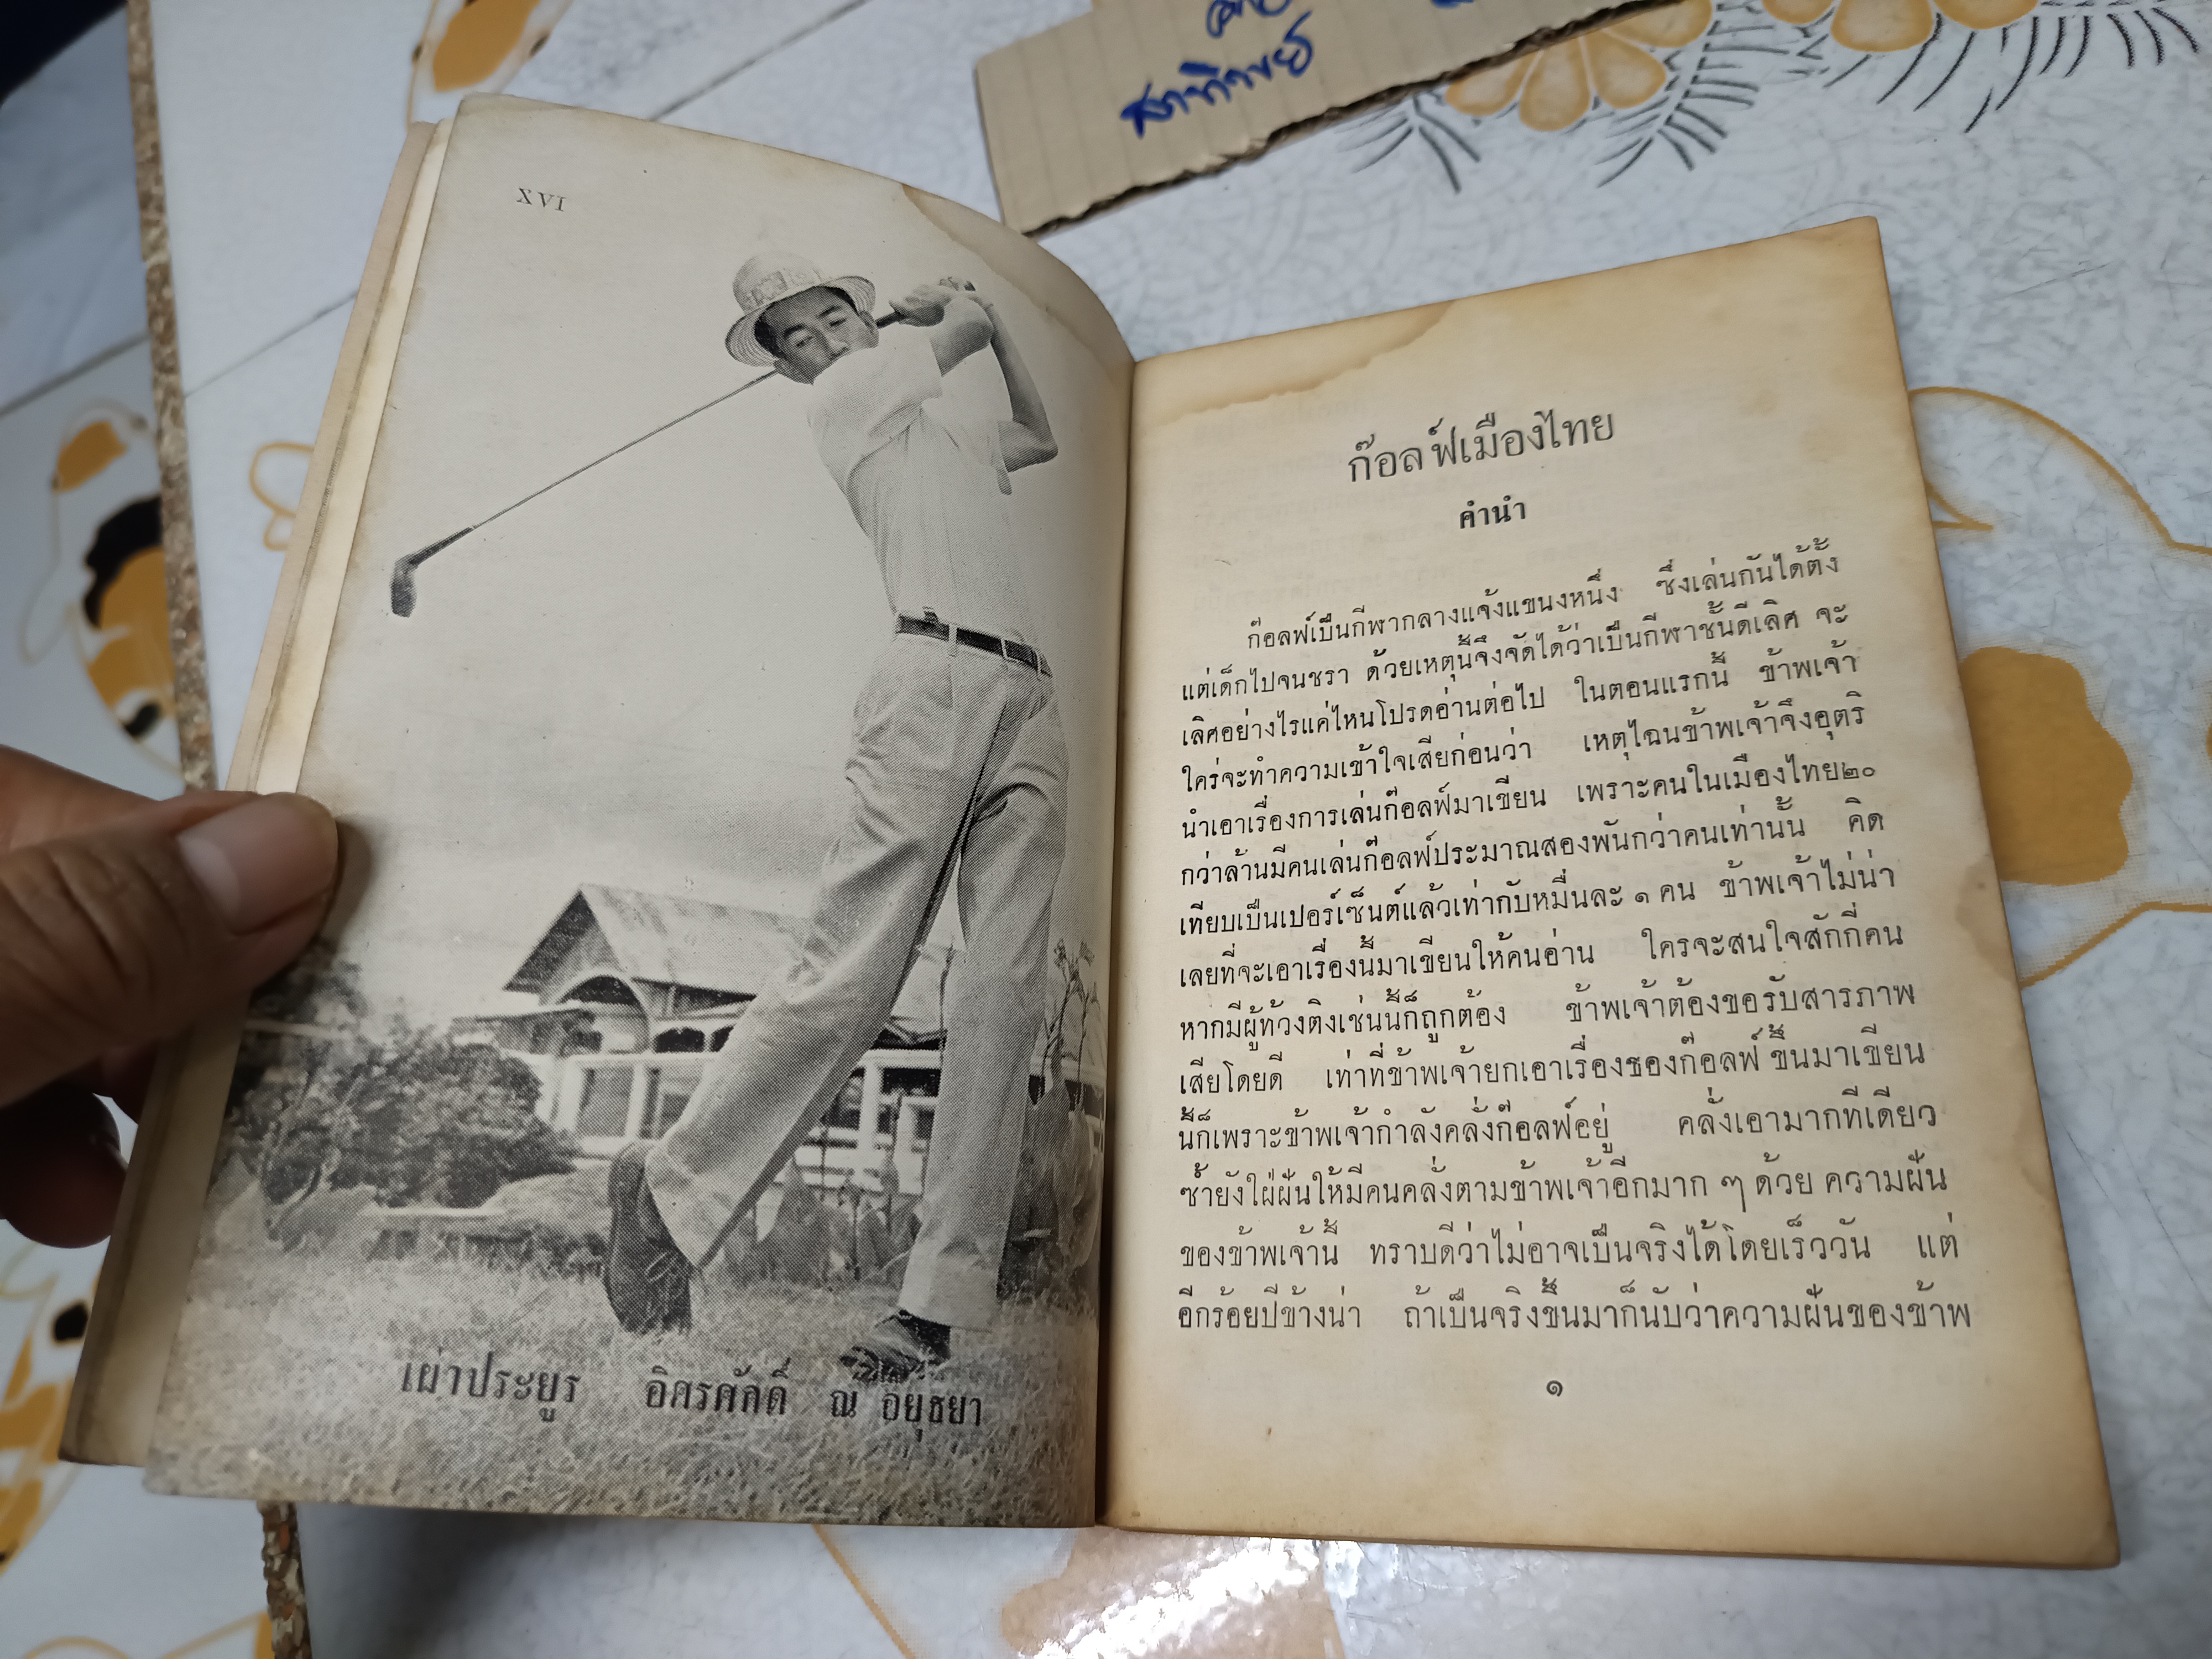 สาทิพย์
XVI
เผ่าประยูร อิศรศักดิ์ ณ อยุธยา
ก๊อลฟ์เมืองไทย
คำนำ
ก๊อลฟ์เป็นกีฬากลางแจ้งแขนงหนึ่ง ซึ่งเล่นกันได้ตั้ง
แต่เด็กไปจนชรา ด้วยเหตุนี้จึงจัดได้ว่าเป็นกีฬาชั้นดีเลิศ จะ
เลิศอย่างไรแค่ไหนโปรดอ่านต่อไป ในตอนแรกนี้ ข้าพเจ้า
ใคร่จะทำความเข้าใจเสียก่อนว่า เหตุไฉนข้าพเจ้าจึงอุตริ
นำเอาเรื่องการเล่นก๊อลฟ์มาเขียน เพราะคนในเมืองไทย๒๐
กว่าล้านมีคนเล่นก๊อลฟ์ประมาณสองพันกว่าคนเท่านั้น คิด
เทียบเป็นเปอร์เซ็นต์แล้วเท่ากับหมื่นละ ๑ คน ข้าพเจ้าไม่น่า
เลยที่จะเอาเรื่องนี้มาเขียนให้คนอ่าน ใครจะสนใจสักกี่คน
หากมีผู้ท้วงติงเช่นนี้ก็ถูกต้อง ข้าพเจ้าต้องขอรับสารภาพ
เสียโดยดี เท่าที่ข้าพเจ้ายกเอาเรื่องของก๊อลฟ์ ขึ้นมาเขียน
นี้ก็เพราะข้าพเจ้ากำลังคลั่งก๊อลฟ์อยู่ คลั่งเอามากทีเดียว
ซ้ำยังใฝ่ฝันให้มีคนคลั่งตามข้าพเจ้าอีกมาก ๆ ด้วย ความฝัน
ของข้าพเจ้านี้ ทราบดีว่าไม่อาจเป็นจริงได้โดยเร็ววัน แต่
อีกร้อยปีข้างน่า ถ้าเป็นจริงขึ้นมาก็นับว่าความฝันของข้าพ
๑